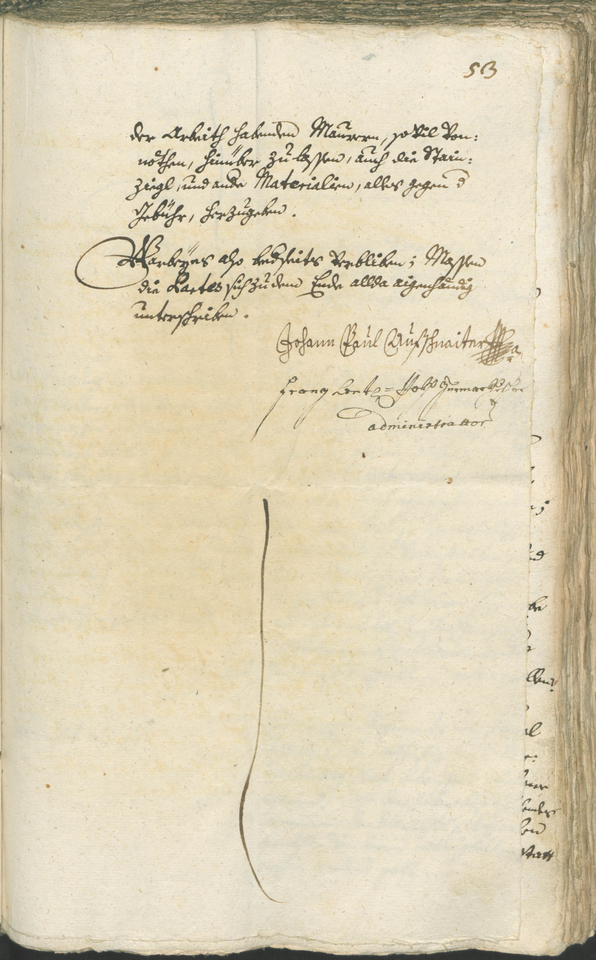 53
der Arbeith habenden Maurern, sovil von:
nöthen, hinüber zu lassen, auch die Stain:
ziegl, und ande Materialien, alles gegen d
gebühr, herzugeben.
Warbeÿ es also bedseits verbliben; Massen
die Partes sich zu dem Ende allda aigenhändig
unterschriben.
Johann Paul Aufschnaiter
Franz
administrator